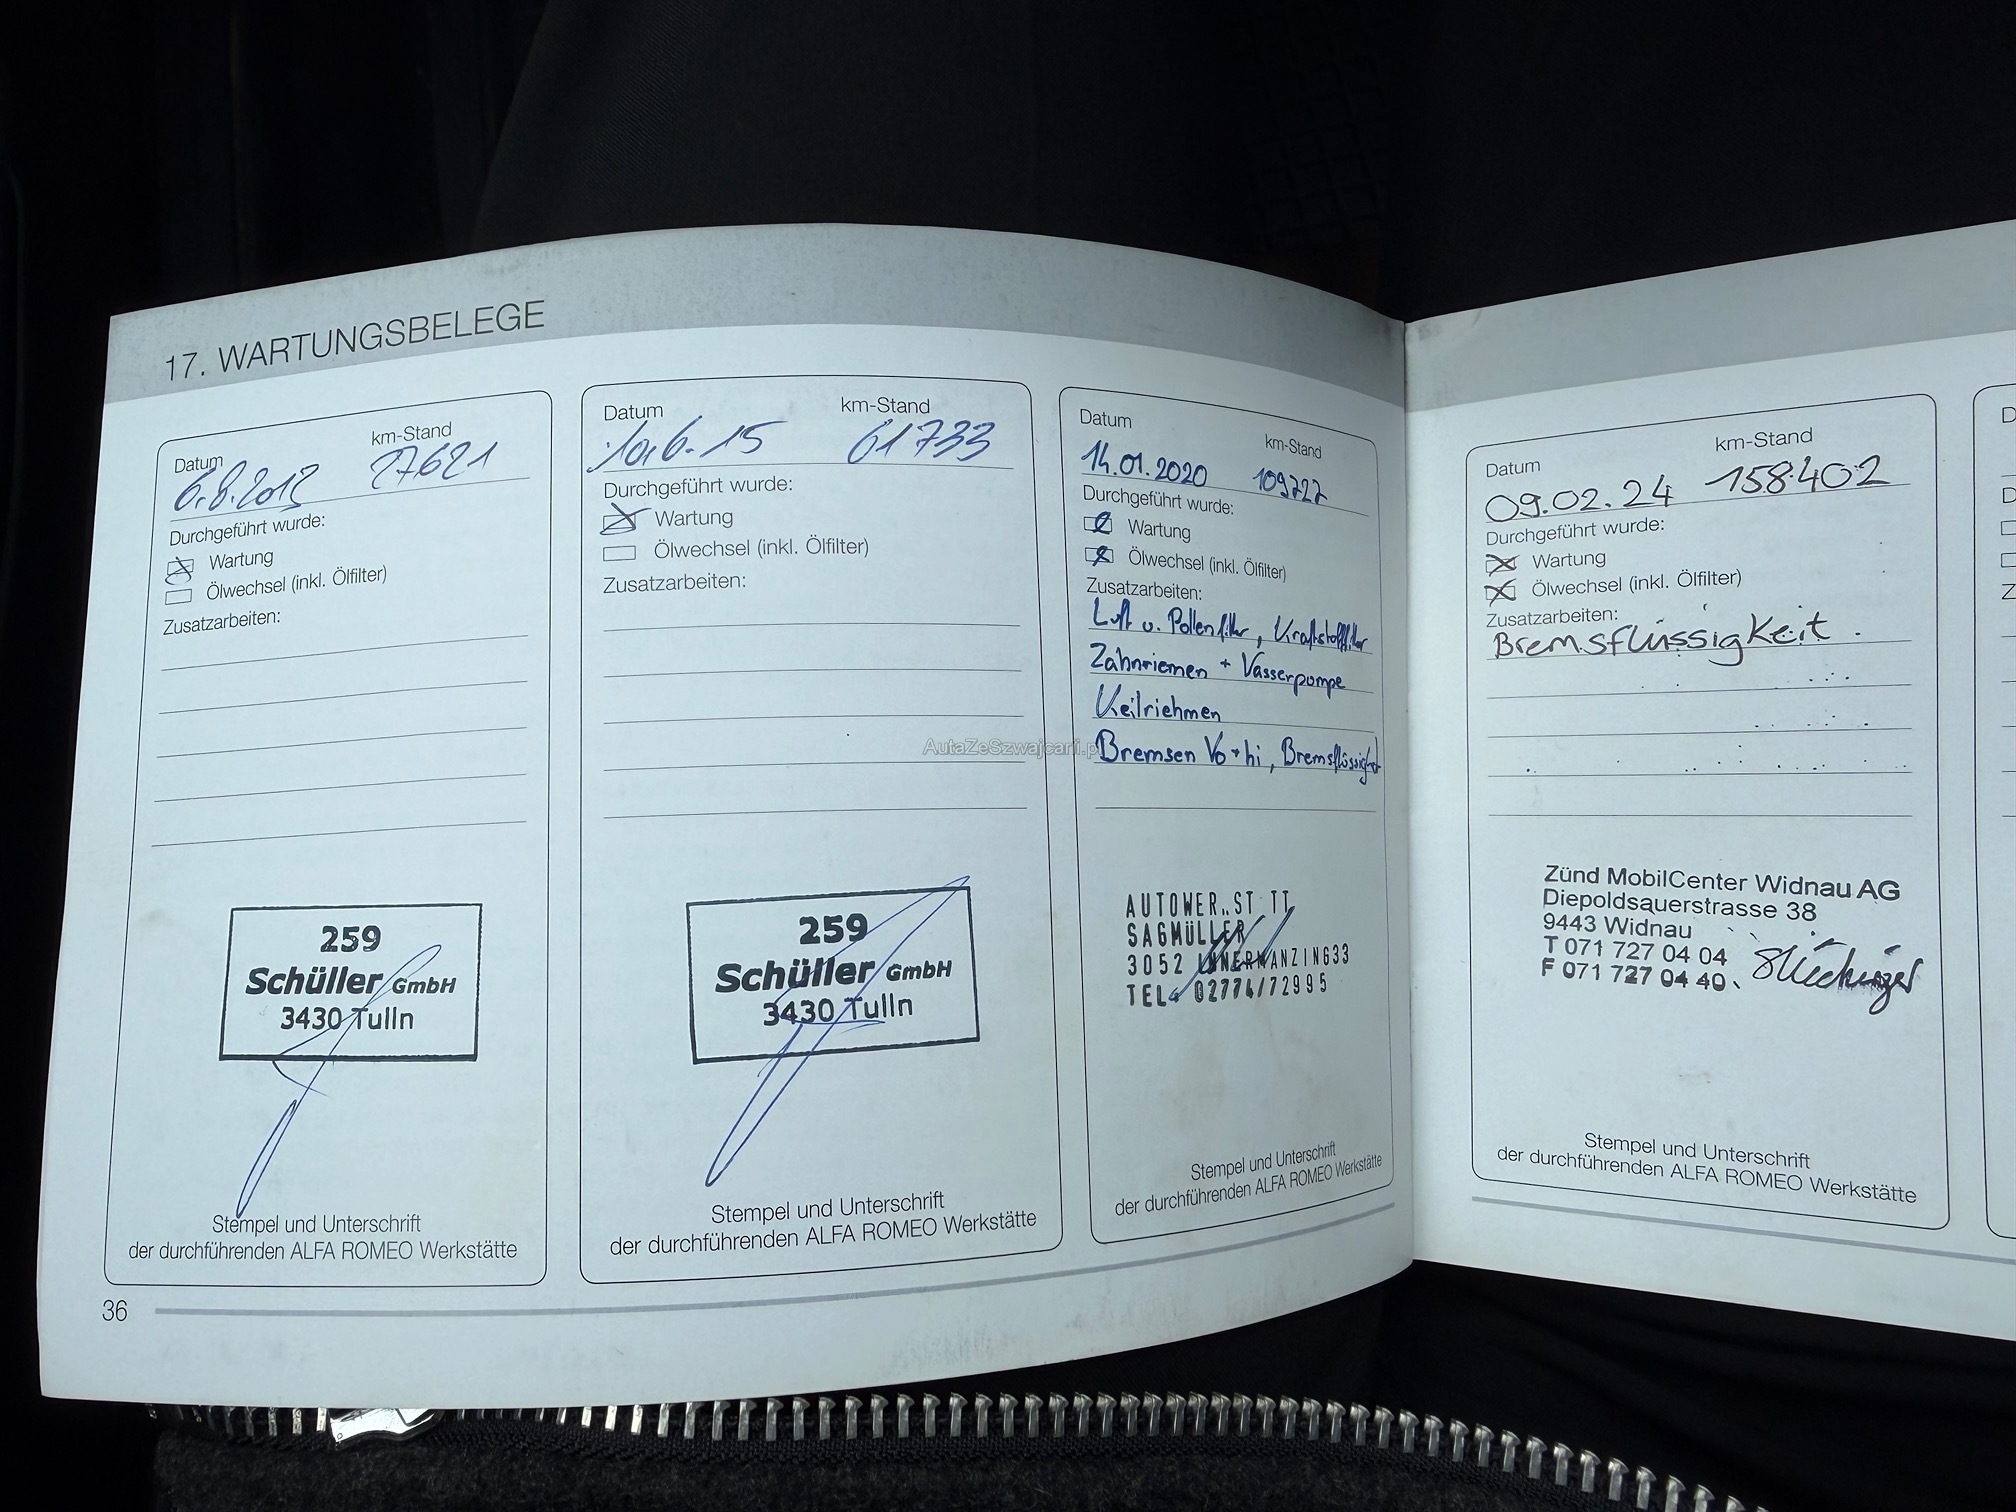 17. WARTUNGSBELEGE
Datum km-Stand
6.8.2013 27621
Durchgeführt wurde:
Wartung
Ölwechsel (inkl. Ölfilter)
Zusatzarbeiten:
259
Schüller GmbH
3430 Tulln
Stempel und Unterschrift
der durchführenden ALFA ROMEO Werkstätte
36
Datum km-Stand
10.6.15 61733
Durchgeführt wurde:
Wartung
Ölwechsel (inkl. Ölfilter)
Zusatzarbeiten:
259
Schüller GmbH
3430 Tulln
Stempel und Unterschrift
der durchführenden ALFA ROMEO Werkstätte
Datum km-Stand
14.01.2020 109727
Durchgeführt wurde:
Wartung
Ölwechsel (inkl. Ölfilter)
Zusatzarbeiten:
Luft u. Pollenfilter, Kraftstofffilter
Zahnriemen + Wasserpumpe
Keilriehmen
Bremsen Vo + hi, Bremsflüssigkeit
AutaZeSzwajcarii.pl
SAGMÜLLER
3052 INNERMANZING33
TEL. 02774/72995
Stempel und Unterschrift
der durchführenden ALFA ROMEO Werkstätte
Datum km-Stand
09.02.24 158.402
Durchgeführt wurde:
Wartung
Ölwechsel (inkl. Ölfilter)
Zusatzarbeiten:
Bremsflüssigkeit.
Zünd MobilCenter Widnau AG
Diepoldsauerstrasse 38
9443 Widnau
T 071 727 04 04
F 071 727 04 40
Stempel und Unterschrift
der durchführenden ALFA ROMEO Werkstätte